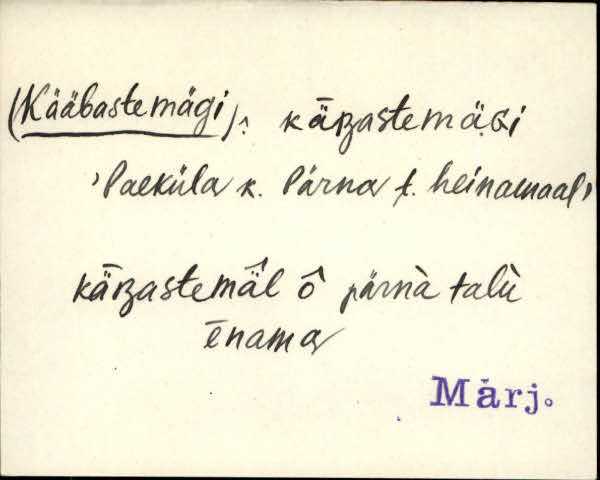 (Kääbastemägi): kǟʙastemäɢi
'Paeküla k. Pärna t. heinamaal'
kǟʙastemä̂l ô pärnà talù
ēnama
Märj.